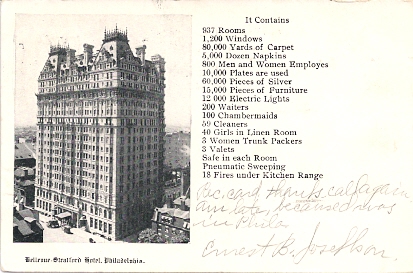 It Contains
937 Rooms
1,200 Windows
80,000 Yards of Carpet
5,000 Dozen Napkins
800 Men and Women Employes
10,000 Plates are used
60,000 Pieces of Silver
15,000 Pieces of Furniture
12 000 Electric Lights
200 Waiters
100 Chambermaids
59 Cleaners
40 Girls in Linen Room
3 Women Trunk Packers
3 Valets
Safe in each Room
Pneumatic Sweeping
18 Fires under Kitchen Range
Rec. card thanks call again
because was
in Phila.
Ernest B. Josephson.
Bellevue-Stratford Hotel, Philadelphia.